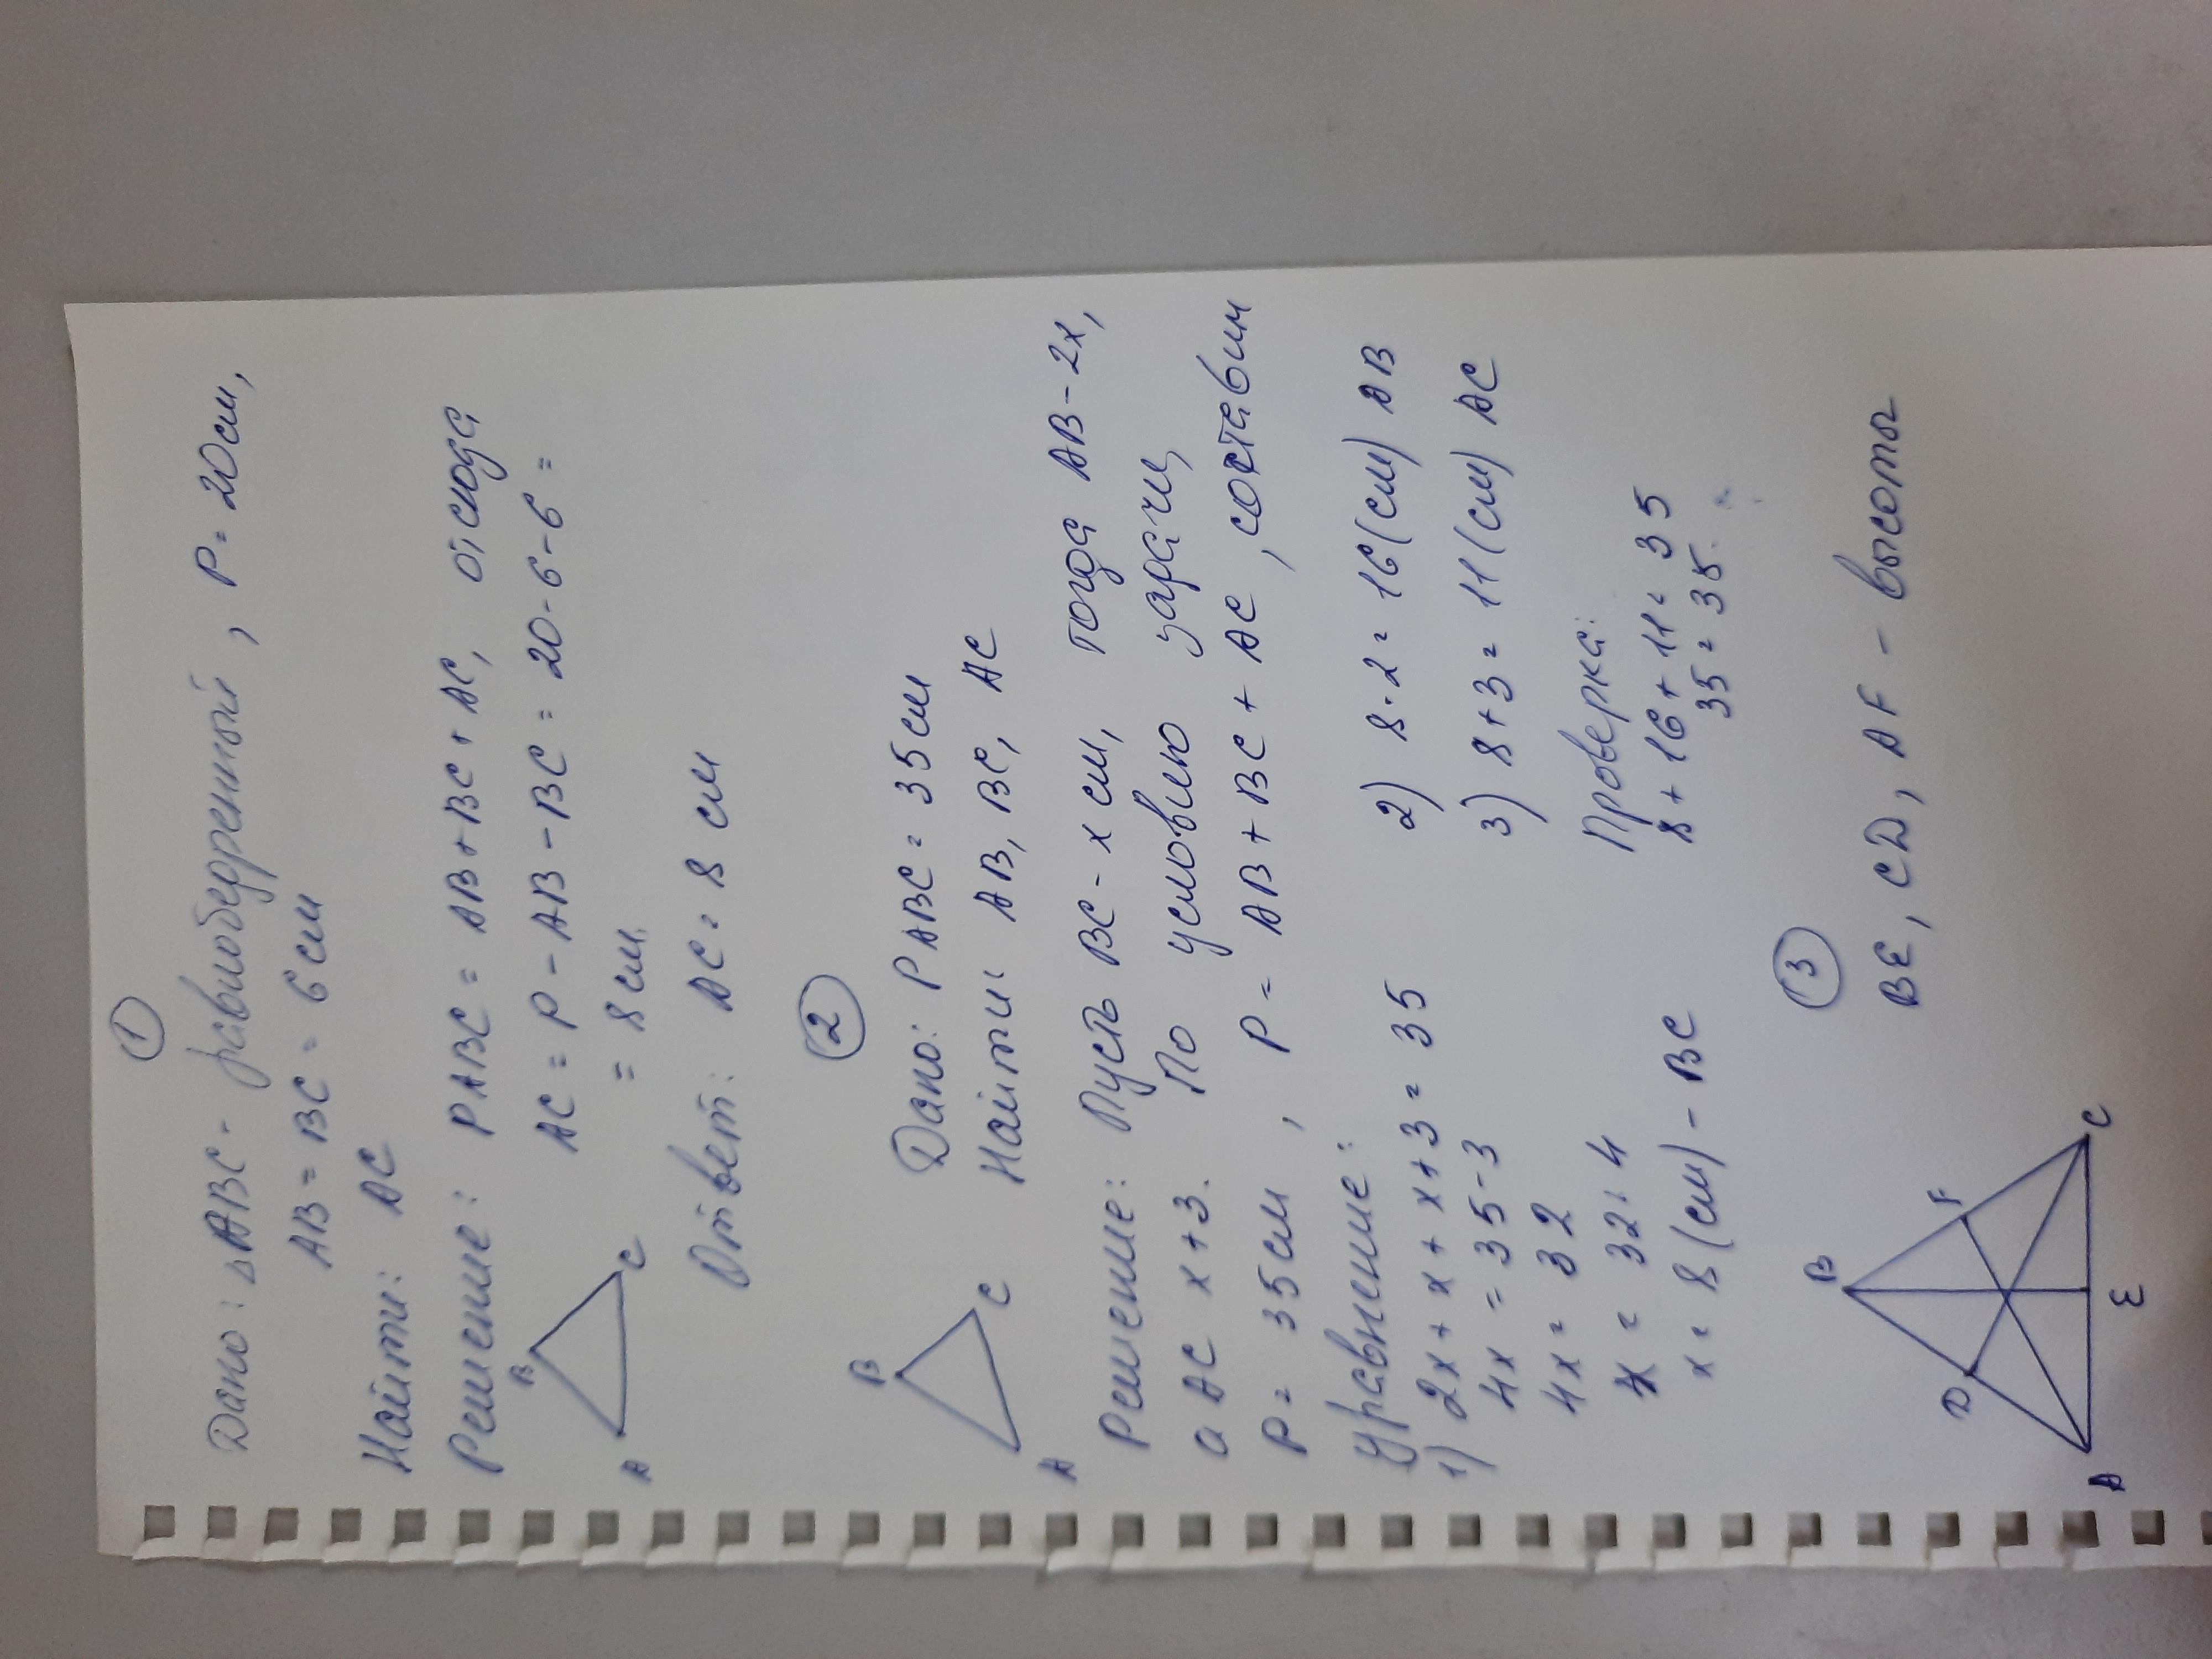 1
Дано: △ABC - равнобедренный, P = 20см,
AB = BC = 6 см
Найти: AC
Решение: PABC = AB + BC + AC, отсюда
AC = P - AB - BC = 20 - 6 - 6 =
= 8 см.
B
A
C
Ответ: AC = 8 см
2
Дано: PABC = 35 см
Найти: AB, BC, AC
B
A
C
Решение: Пусть BC - x см, тогда AB - 2x,
а AC x + 3. По условию задачи,
P = 35 см, P = AB + BC + AC, составим
уравнение:
1) 2x + x + x + 3 = 35
4x = 35 - 3
4x = 32
x = 32 : 4
x = 8 (см) - BC
2) 8 · 2 = 16 (см) AB
3) 8 + 3 = 11 (см) AC
Проверка:
8 + 16 + 11 = 35
35 = 35.
3
BE, CD, AF - высоты
B
D
F
A
E
C